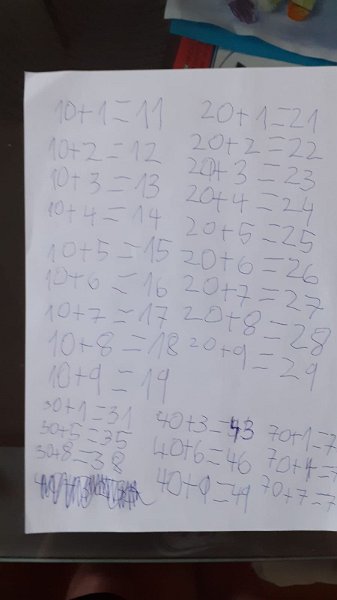 10+1=11
10+2=12
10+3=13
10+4=14
10+5=15
10+6=16
10+7=17
10+8=18
10+9=19
20+1=21
20+2=22
20+3=23
20+4=24
20+5=25
20+6=26
20+7=27
20+8=28
20+9=29
30+1=31
30+5=35
30+8=38
40+3=43
40+6=46
40+9=49
70+1=7
70+4=7
70+7=7